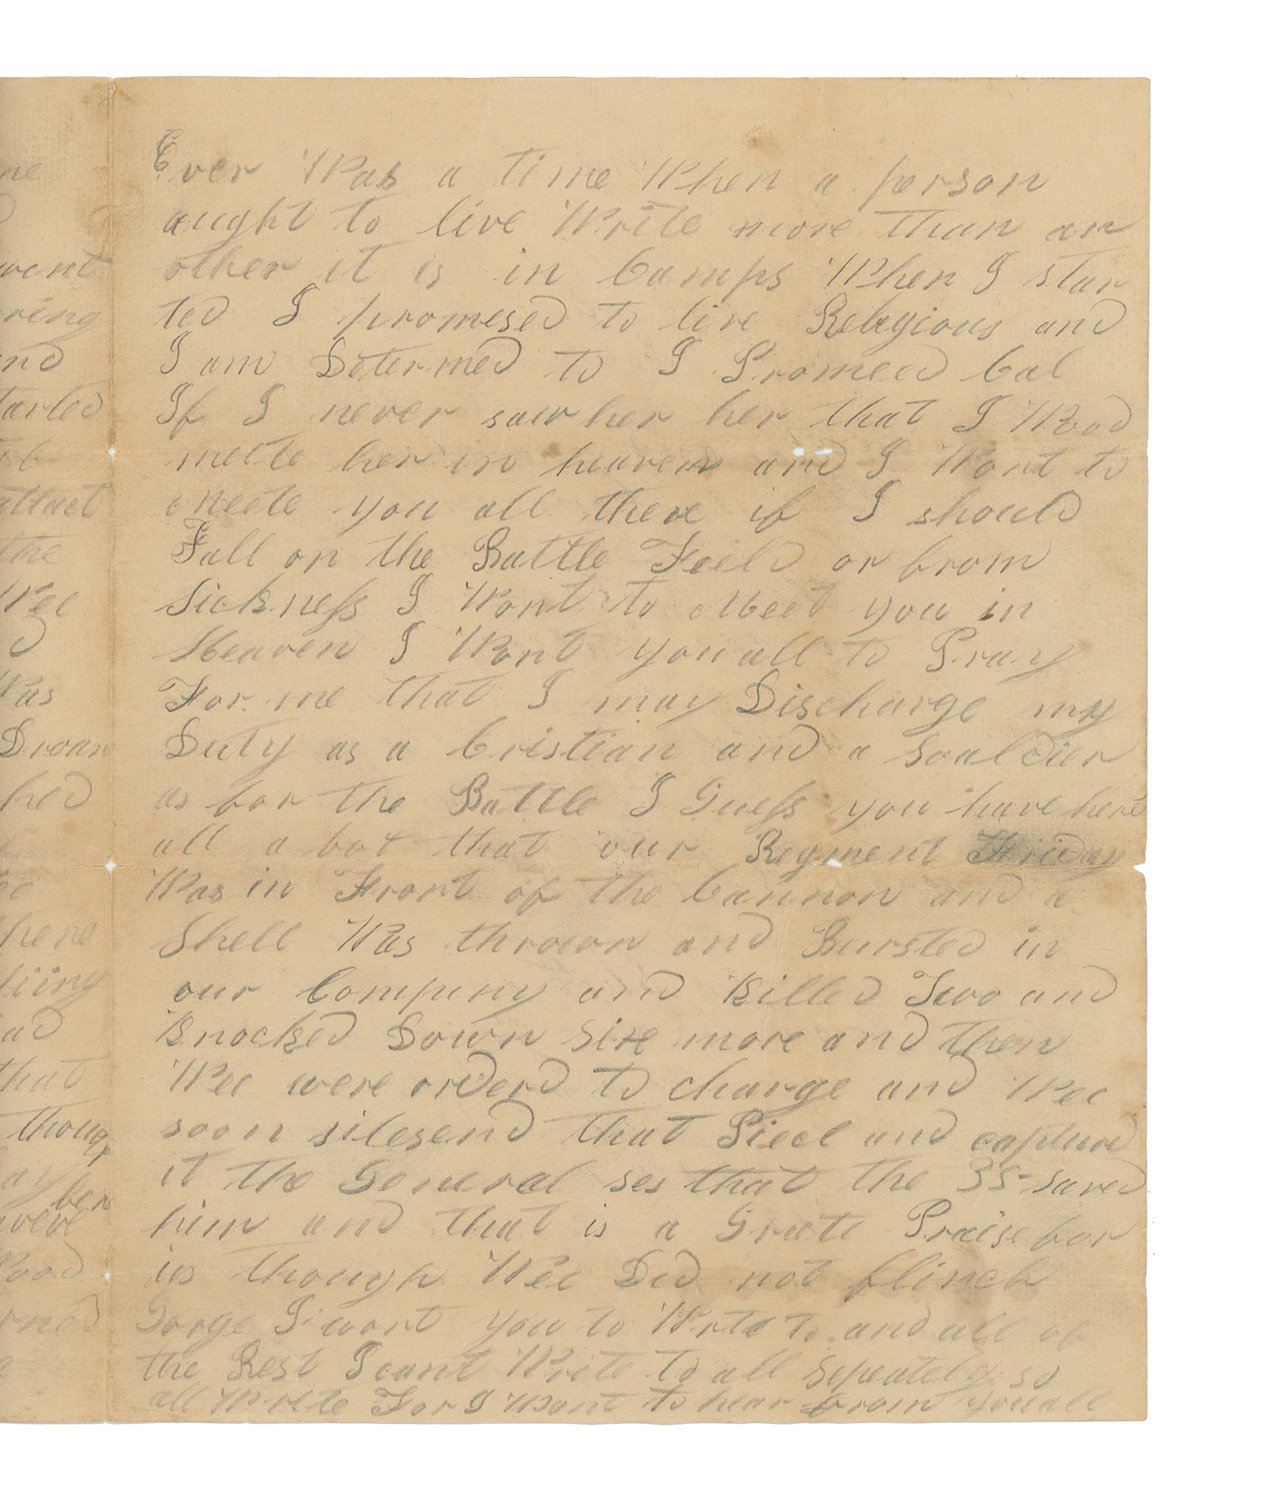 ne
vent
ring
nd
tarted
attact
the
Wee
d
Was
Droan
hed
here
ad
that
thoug
ay
ben
were
Wood
rned
Ever Was a time When a person
aught to live Write more than an
other it is in Camps When I star
ted I promesed to live Relegious and
I am Determed to I Promeed Cal
If I never saw her her that I Wood
meete her in heaven and I Wont to
meete you all there if I should
Fall on the Battle Feild or from
Sickness I Wont to Meet you in
Heaven I Wont you all to Pray
For me that I may Discharge my
Duty as a Cristian and a Souldier
as for the Battle I Guess you have here
all a bot that our Regment Friday
Was in Front of the Cannon and a
Shell Was thrown and Bursted in
our Company and Killed Two and
Knocked Down Sixe more and then
Wee were orderd to charge and Wee
soon silesend that Piece and captured
it the General ses that the 35 saved
him and that is a Greate Praise for
us though Wee Did not flinch
Gorge I wont you to Write to and all of
the Rest I cant Write to all Sepeately so
all Write For I Wont to hear from you all